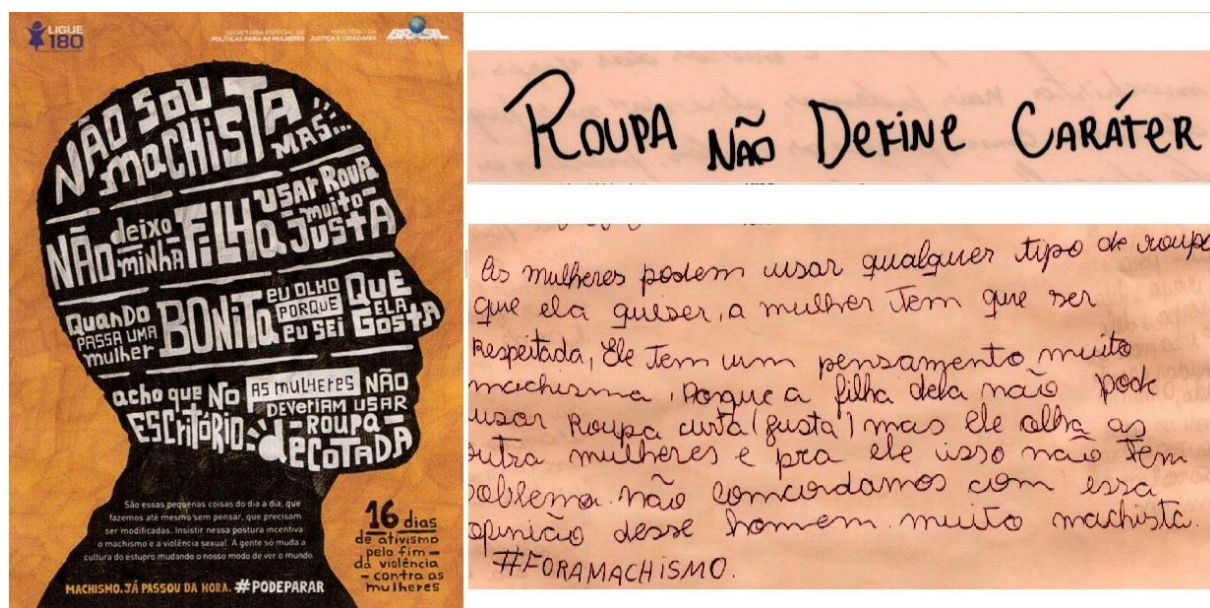 LIGUE
180
SECRETARIA ESPECIAL DE
POLÍTICAS PARA AS MULHERES
MINISTÉRIO DA
JUSTIÇA E CIDADANIA
BRASIL
NÃO SOU
MACHISTA
MAS...
NÃO deixo minha FILHA USAR ROUPA muito JUSTA
QUANDO PASSA UMA mulher BONITA eu OLHO PORQUE eu SEI QUE ELA GOSTA
acho que NO ESCRITÓRIO AS MULHERES NÃO DEVERIAM USAR ROUPA decOTADA
São essas pequenas coisas do dia a dia, que
fazemos até mesmo sem pensar, que precisam
ser modificadas. Insistir nessa postura incentiva
o machismo e a violência sexual. A gente só muda a
cultura do estupro mudando o nosso modo de ver o mundo.
MACHISMO. JÁ PASSOU DA HORA. #PODEPARAR
16 dias
de ativismo
pelo fim
da violência
contra as
mulheres
ROUPA NÃO DEFINE CARÁTER
As mulheres podem usar qualquer tipo de roupa
que ela quiser, a mulher tem que ser
Respeitada, Ele tem um pensamento muito
machisma, Porque a filha dela não pode
usar Roupa curta (justa) mas ele olha as
outra mulheres e pra ele isso não tem
poblema. não concordamos com essa
opinição desse homem muito machista.
#FORAMACHISMO.